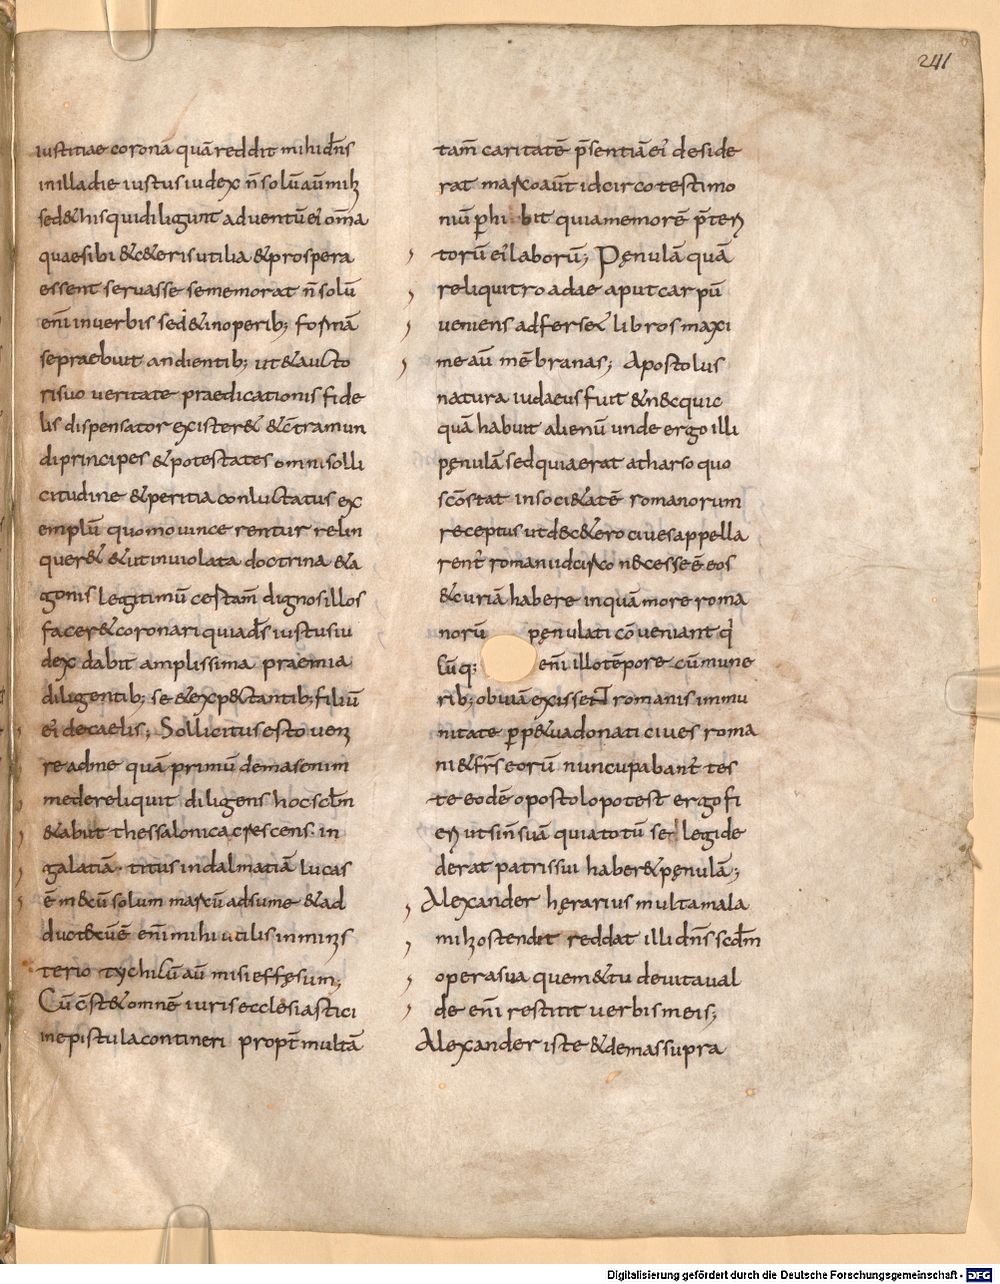 241
iustitiae coronā quā reddit mihi dn̄s
in illa die iustus iudex n̄ solū aū mihi
sed & his qui diligunt adventū ei' om̄a
quae sibi & c&eris utilia & prospera
essent servasse se memorat n̄ solū
enī in verbis sed & in operib; formā
se praebuit audientib; ut & aucto
ri suo veritate praedicationis fide
lis dispensator exister& & c̄tra mun
di principes & potestates omni solli
citudine & peritia conluctatus ex
emplū quomo vincerentur relin
quer& & ut inviolata doctrina & a
gonis legitimū cestam̄ dignos illos
facer& coronari quia ds̄ iustus iu
dex dabit amplissima praemia
diligentib; se & exp&ctantib; filiū
ei' de caelis; Sollicitus esto veni
re ad me quā primū demas enim
me dereliquit diligens hoc sclm̄
& abiit thessalonica crescens in
galatiā · titus in dalmatiā lucas
ē mecū solum marcū adsume & ad
duc tecū ē enī mihi utilis in minis
terio tychicū aū misi effęsum;
Cū c̄st& omnē iuris ecclesiastici
in epistula contineri propt̄ multā
tam̄ caritatē p̄sentiā ei' deside
rat marco aūt idcirco testimo
niū phibit quia memorē p̄teri
torū ei' laborū; Pęnulā quā
reliqui troadae aput carpū
veniens adfer tecū & libros maxi
me aū mēbranas; Apostolus
natura iudaeus fuit & n&c quic
quā habuit alienū unde ergo illi
pęnulā sed quia erat a tharso quo
sc̄o stat in soci&atē romanorum
receptus ut d&c&ero cives appella
rent' romani idcirco n&cesse ē eos
& curiā habere in quā more roma
norū pęnulati cōveniant q'
Cūq; enī illo tēpore cū mune
rib; obviā exisset romanis inmu
nitate p̄p&ua donati cives roma
ni & frs̄ eorū nuncupabant' tes
te eodē apostolo potest ergo fi
eri ut sīn suā qui a totū se legide
derat patris sui haber& pęnulā;
Alexander hęrarius multa mala
mihi ostendit reddat illi dn̄s scdm̄
opera sua quem & tu devita val
de enī restitit verbis meis;
Alexander iste & demas supra
Digitalisierung gefördert durch die Deutsche Forschungsgemeinschaft - DFG